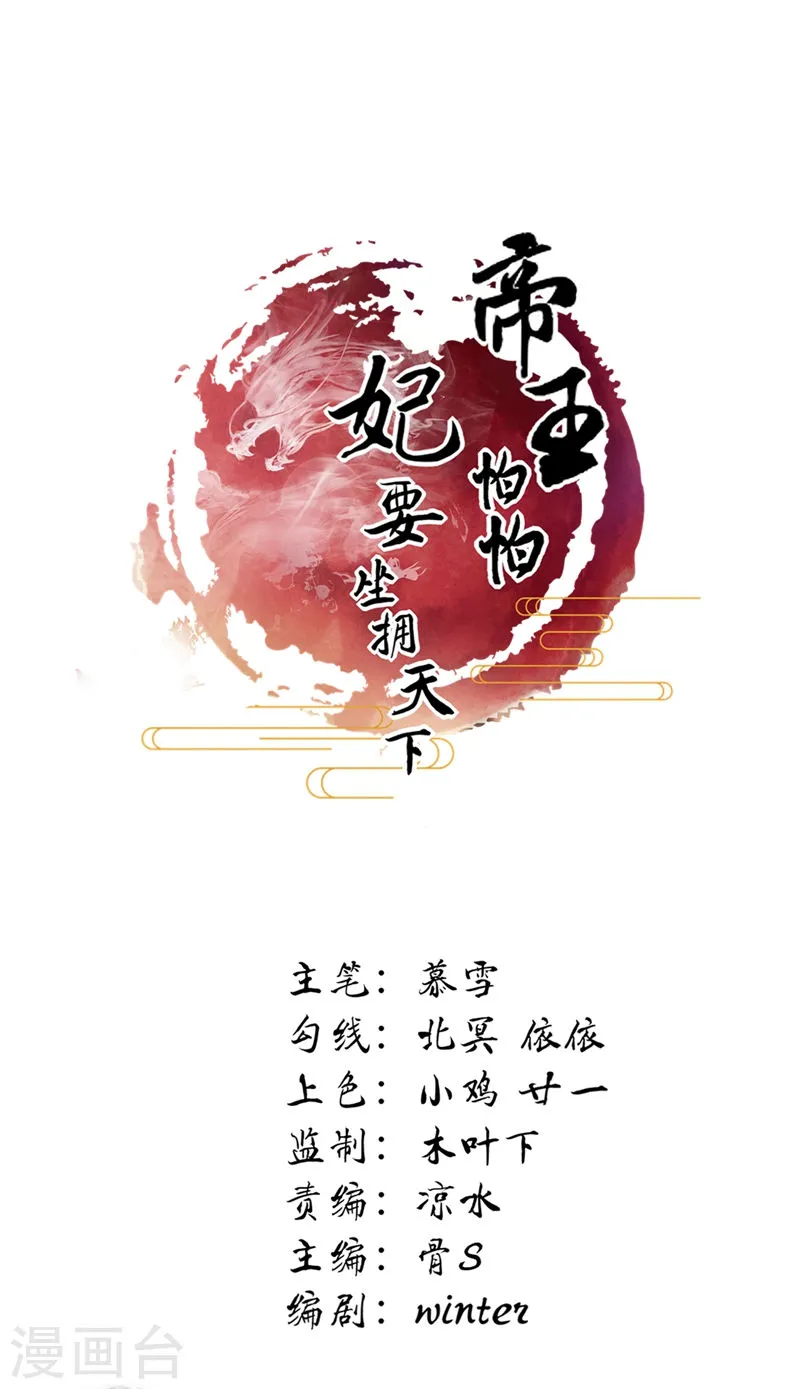 帝王怕怕
妃要坐拥天下
主笔：慕雪
勾线：北冥 依依
上色：小鸡 廿一
监制：木叶下
责编：凉水
主编：骨S
编剧：winter
漫画台